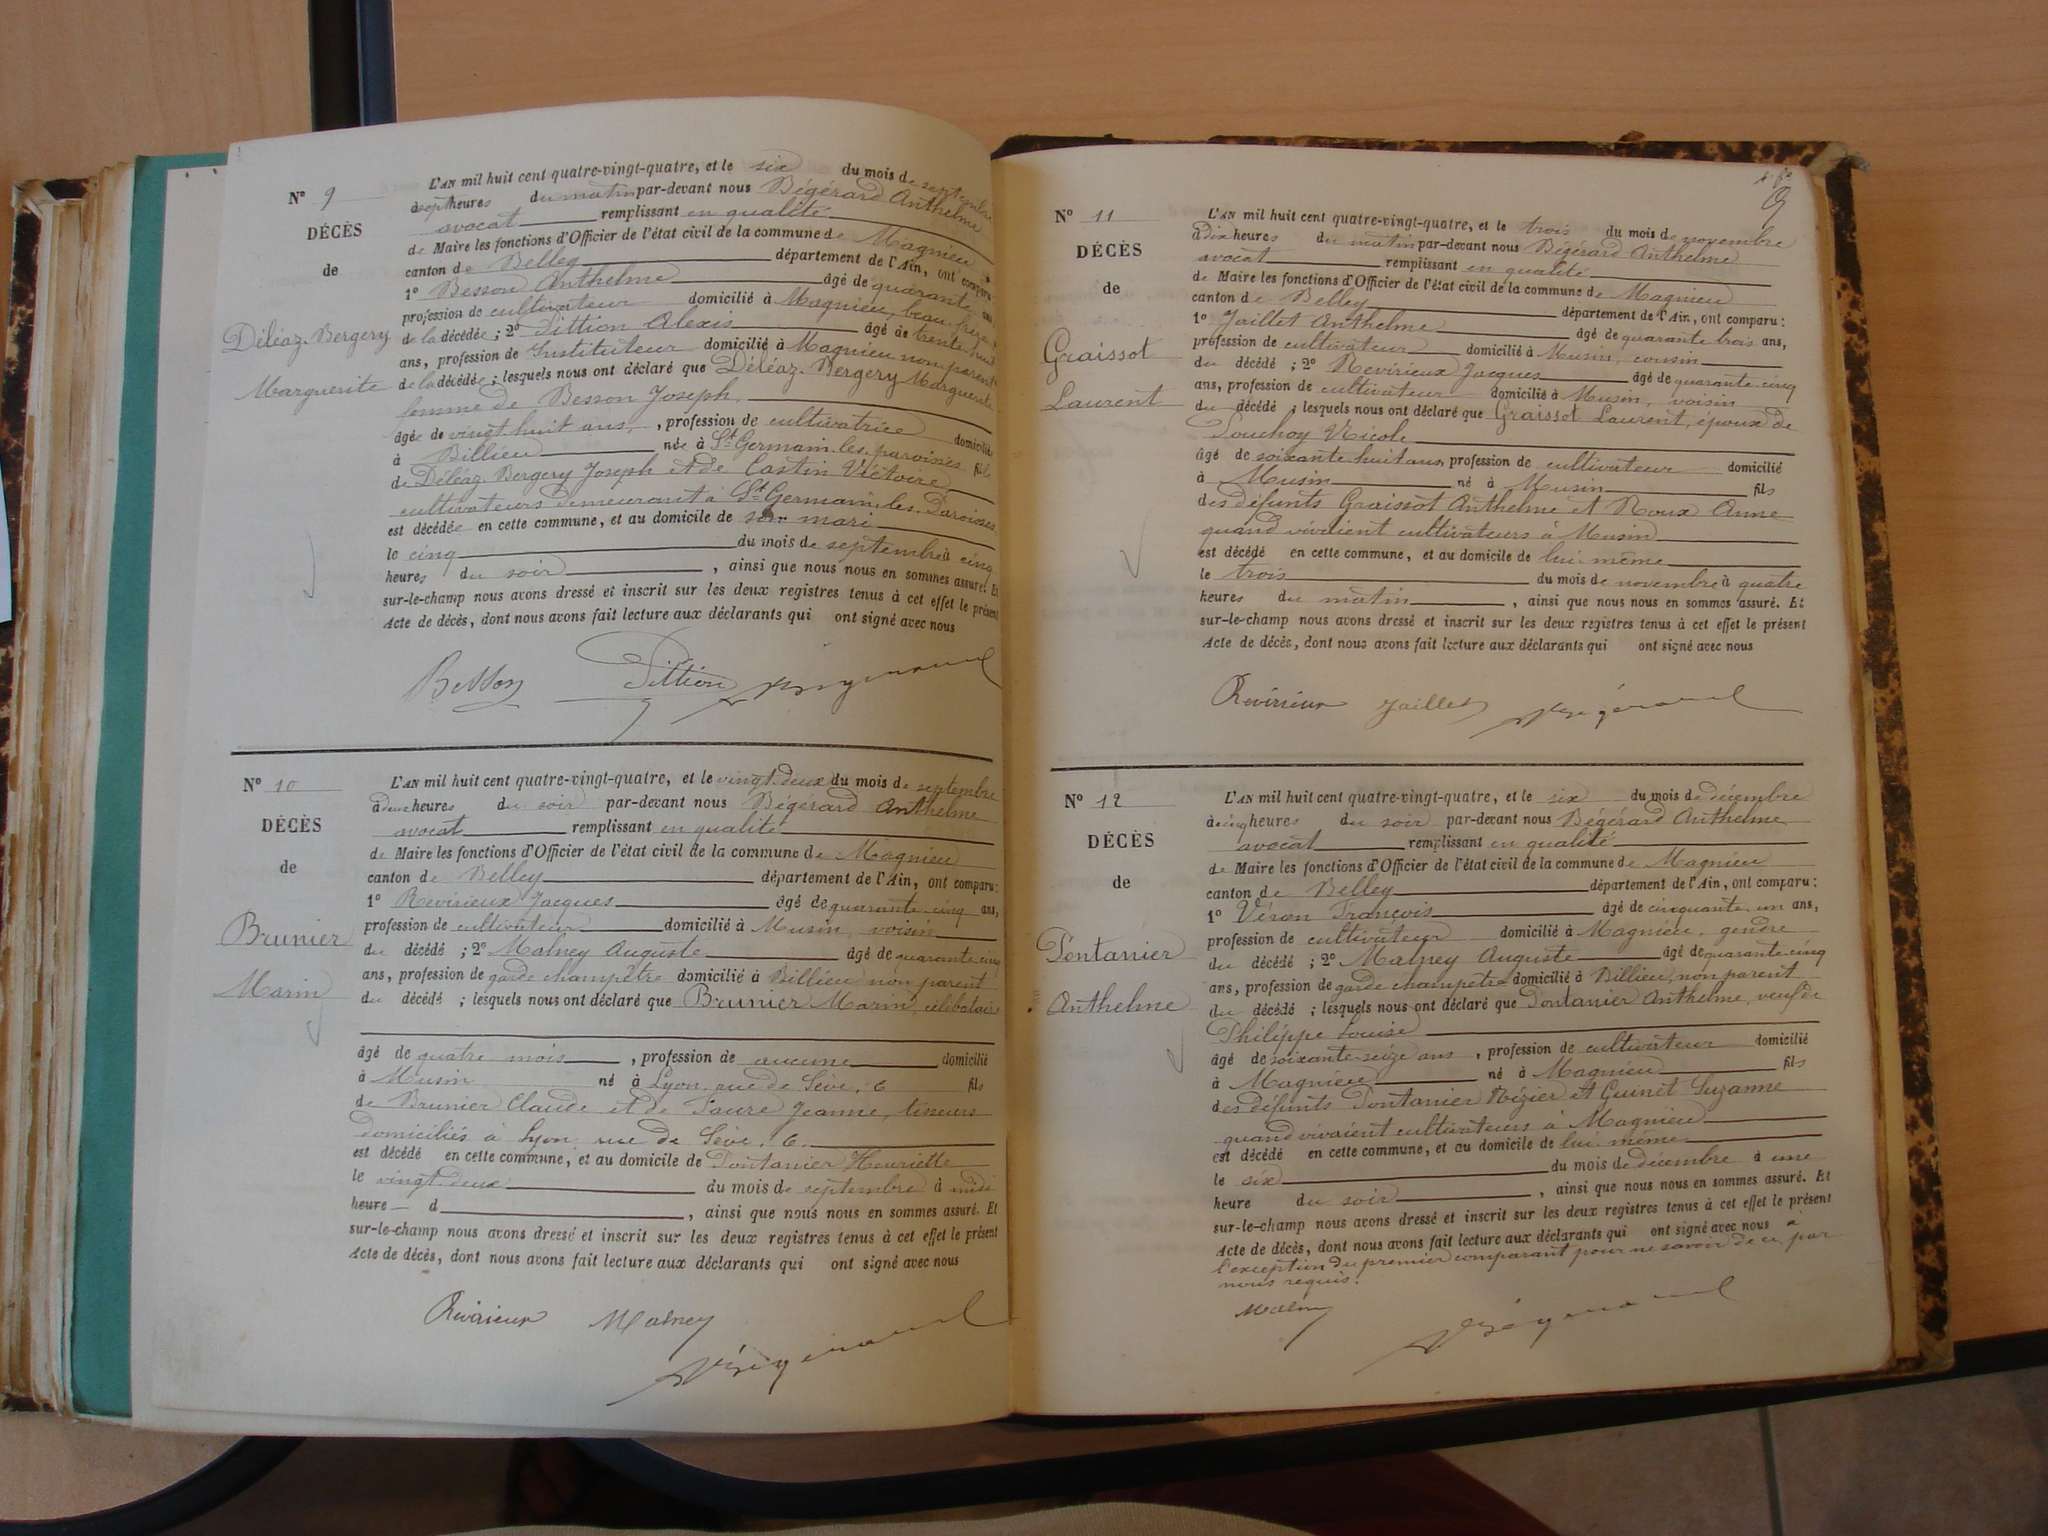 N° 9
DÉCÈS
de
Déléaz-Bergery
Marguerite
L'AN mil huit cent quatre-vingt-quatre, et le six du mois de septembre
à sept heures du matin par-devant nous Bégérard Anthelme
avocat remplissant en qualité
de Maire les fonctions d'Officier de l'état civil de la commune de Magnieu
canton de Belley département de l'Ain, ont comparu
1° Besson Anthelme âgé de quarante ans
profession de cultivateur domicilié à Magnieu, beau-frère
de la décédée ; 2° Pittion Alexis âgé de trente-huit
ans, profession de Instituteur domicilié à Magnieu non parent
de la décédée ; lesquels nous ont déclaré que Déléaz-Bergery Marguerite
femme de Besson Joseph
âgée de vingt huit ans, profession de cultivatrice domiciliée
à Billieu née à St Germain les paroisses fille
de Déléaz Bergery Joseph et de Castin Victoire
cultivateurs demeurant à St Germain les Paroisses
est décédée en cette commune, et au domicile de son mari
le cinq du mois de septembre à cinq
heures du soir, ainsi que nous nous en sommes assuré. Et
sur-le-champ nous avons dressé et inscrit sur les deux registres tenus à cet effet le présent
Acte de décès, dont nous avons fait lecture aux déclarants qui ont signé avec nous
Besson Pittion Bégérard
N° 10
DÉCÈS
de
Brunier
Marin
L'AN mil huit cent quatre-vingt-quatre, et le vingt-deux du mois de septembre
à deux heures du soir par-devant nous Bégérard Anthelme
avocat remplissant en qualité
de Maire les fonctions d'Officier de l'état civil de la commune de Magnieu
canton de Belley département de l'Ain, ont comparu :
1° Revirieux Jacques âgé de quarante-cinq ans,
profession de cultivateur domicilié à Musin, voisin
du décédé ; 2° Malney Auguste âgé de quarante-cinq
ans, profession de garde champêtre domicilié à Billieu non parent
du décédé ; lesquels nous ont déclaré que Brunier Marin, célibataire
âgé de quatre mois, profession de aucune domicilié
à Musin né à Lyon, rue de Sève, 6 fils
de Brunier Claude et de Faure Jeanne, tisseurs
domiciliés à Lyon, rue de Sève, 6
est décédé en cette commune, et au domicile de Pontanier Henriette
le vingt-deux du mois de septembre à midi
heure d, ainsi que nous nous en sommes assuré. Et
sur-le-champ nous avons dressé et inscrit sur les deux registres tenus à cet effet le présent
Acte de décès, dont nous avons fait lecture aux déclarants qui ont signé avec nous
Revirieux Malney
Bégérard
N° 11
DÉCÈS
de
Graissot
Laurent
L'AN mil huit cent quatre-vingt-quatre, et le trois du mois de novembre
à dix heures du matin par-devant nous Bégérard Anthelme
avocat remplissant en qualité
de Maire les fonctions d'Officier de l'état civil de la commune de Magnieu
canton de Belley département de l'Ain, ont comparu :
1° Jaillet Anthelme âgé de quarante trois ans,
profession de cultivateur domicilié à Musin, cousin
du décédé ; 2° Revirieux Jacques âgé de quarante-cinq
ans, profession de cultivateur domicilié à Musin, voisin
du décédé ; lesquels nous ont déclaré que Graissot Laurent, époux de
Nicole
âgé de soixante-huit ans, profession de cultivateur domicilié
à Musin né à Musin fils
des défunts Graissot Anthelme et Roux Anne
quand vivaient cultivateurs à Musin
est décédé en cette commune, et au domicile de lui-même
le trois du mois de novembre à quatre
heures du matin, ainsi que nous nous en sommes assuré. Et
sur-le-champ nous avons dressé et inscrit sur les deux registres tenus à cet effet le présent
Acte de décès, dont nous avons fait lecture aux déclarants qui ont signé avec nous
Revirieux Jaillet Bégérard
N° 12
DÉCÈS
de
Pontanier
Anthelme
L'AN mil huit cent quatre-vingt-quatre, et le six du mois de décembre
à cinq heures du soir par-devant nous Bégérard Anthelme
avocat remplissant en qualité
de Maire les fonctions d'Officier de l'état civil de la commune de Magnieu
canton de Belley département de l'Ain, ont comparu :
1° Véron François âgé de cinquante-un ans,
profession de cultivateur domicilié à Magnieu, gendre
du décédé ; 2° Malney Auguste âgé de quarante-cinq
ans, profession de garde champêtre domicilié à Billieu, non parent
du décédé ; lesquels nous ont déclaré que Pontanier Anthelme, veuf de
Philippe Louise
âgé de soixante-seize ans, profession de cultivateur domicilié
à Magnieu né à Magnieu fils
des défunts Pontanier Nizier et Guinet Suzanne
quand vivaient cultivateurs à Magnieu
est décédé en cette commune, et au domicile de lui-même
le six du mois de décembre à une
heure du soir, ainsi que nous nous en sommes assuré. Et
sur-le-champ nous avons dressé et inscrit sur les deux registres tenus à cet effet le présent
Acte de décès, dont nous avons fait lecture aux déclarants qui ont signé avec nous à
l'exception du premier comparant pour ne savoir de ce par
nous requis.
Malney Bégérard